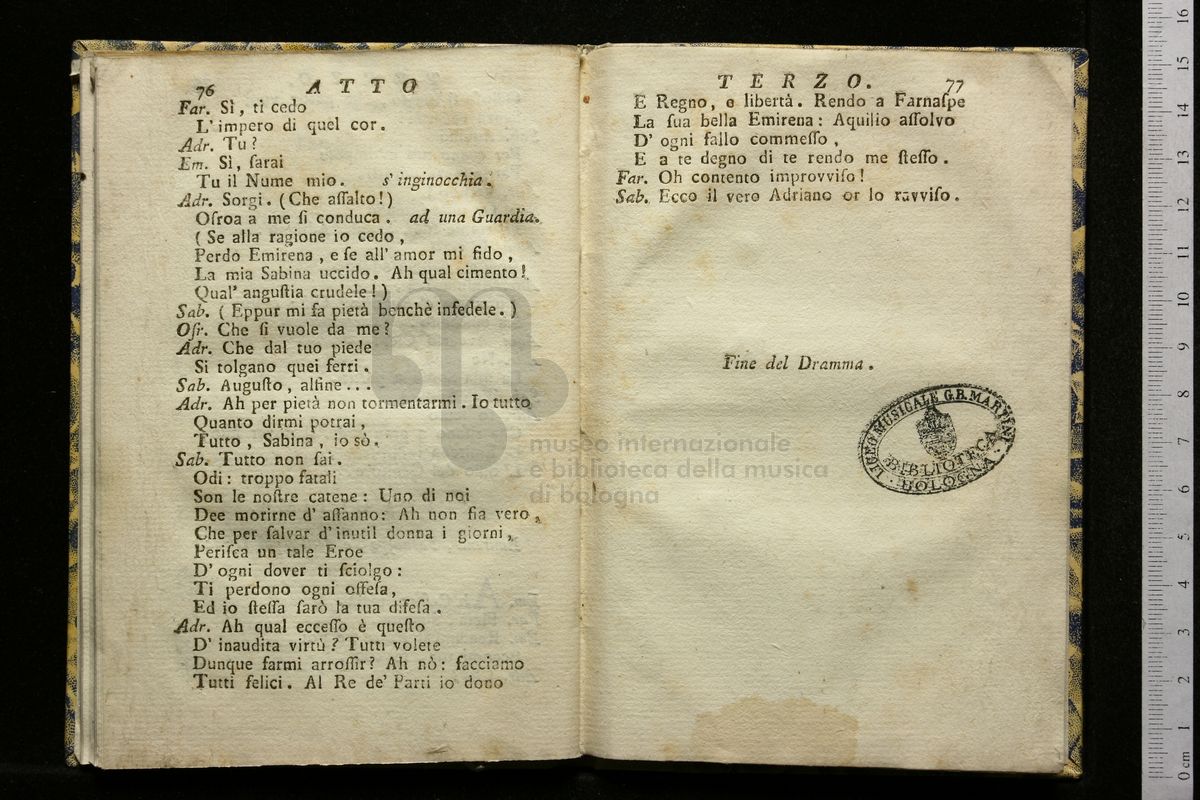 76 ATTO
Far. Sì, ti cedo
L' impero di quel cor.
Adr. Tu?
Em. Sì, ſarai
Tu il Nume mio. s' inginocchia.
Adr. Sorgi. (Che aſſalto!)
Oſroa a me ſi conduca. ad una Guardia.
(Se alla ragione io cedo,
Perdo Emirena, e ſe all' amor mi fido,
La mia Sabina uccido. Ah qual cimento!
Qual' anguſtia crudele!)
Sab. (Eppur mi fa pietà benchè infedele.)
Oſr. Che ſi vuole da me?
Adr. Che dal tuo piede
Si tolgano quei ferri.
Sab. Auguſto, alfine...
Adr. Ah per pietà non tormentarmi. Io tutto
Quanto dirmi potrai,
Tutto, Sabina, io sò.
Sab. Tutto non ſai.
Odi: troppo fatali
Son le noſtre catene: Uno di noi
Dee morirne d' affanno: Ah non fia vero,
Che per ſalvar d' inutil donna i giorni,
Periſca un tale Eroe
D' ogni dover ti ſciolgo:
Ti perdono ogni offeſa,
Ed io ſteſſa ſarò la tua difeſa.
Adr. Ah qual ecceſſo è queſto
D' inaudita virtù? Tutti volete
Dunque farmi arroſſir? Ah nò: facciamo
Tutti felici. Al Re de' Parti io dono
TERZO. 77
E Regno, e libertà. Rendo a Farnaſpe
La ſua bella Emirena: Aquilio aſſolvo
D' ogni fallo commeſſo,
E a te degno di te rendo me ſteſſo.
Far. Oh contento improvviſo!
Sab. Ecco il vero Adriano or lo ravviſo.
Fine del Dramma.
LICEO MUSICALE G.B. MARTINI
BIBLIOTECA
BOLOGNA
museo internazionale
e biblioteca della musica
di bologna
0 cm 1 2 3 4 5 6 7 8 9 10 11 12 13 14 15 16